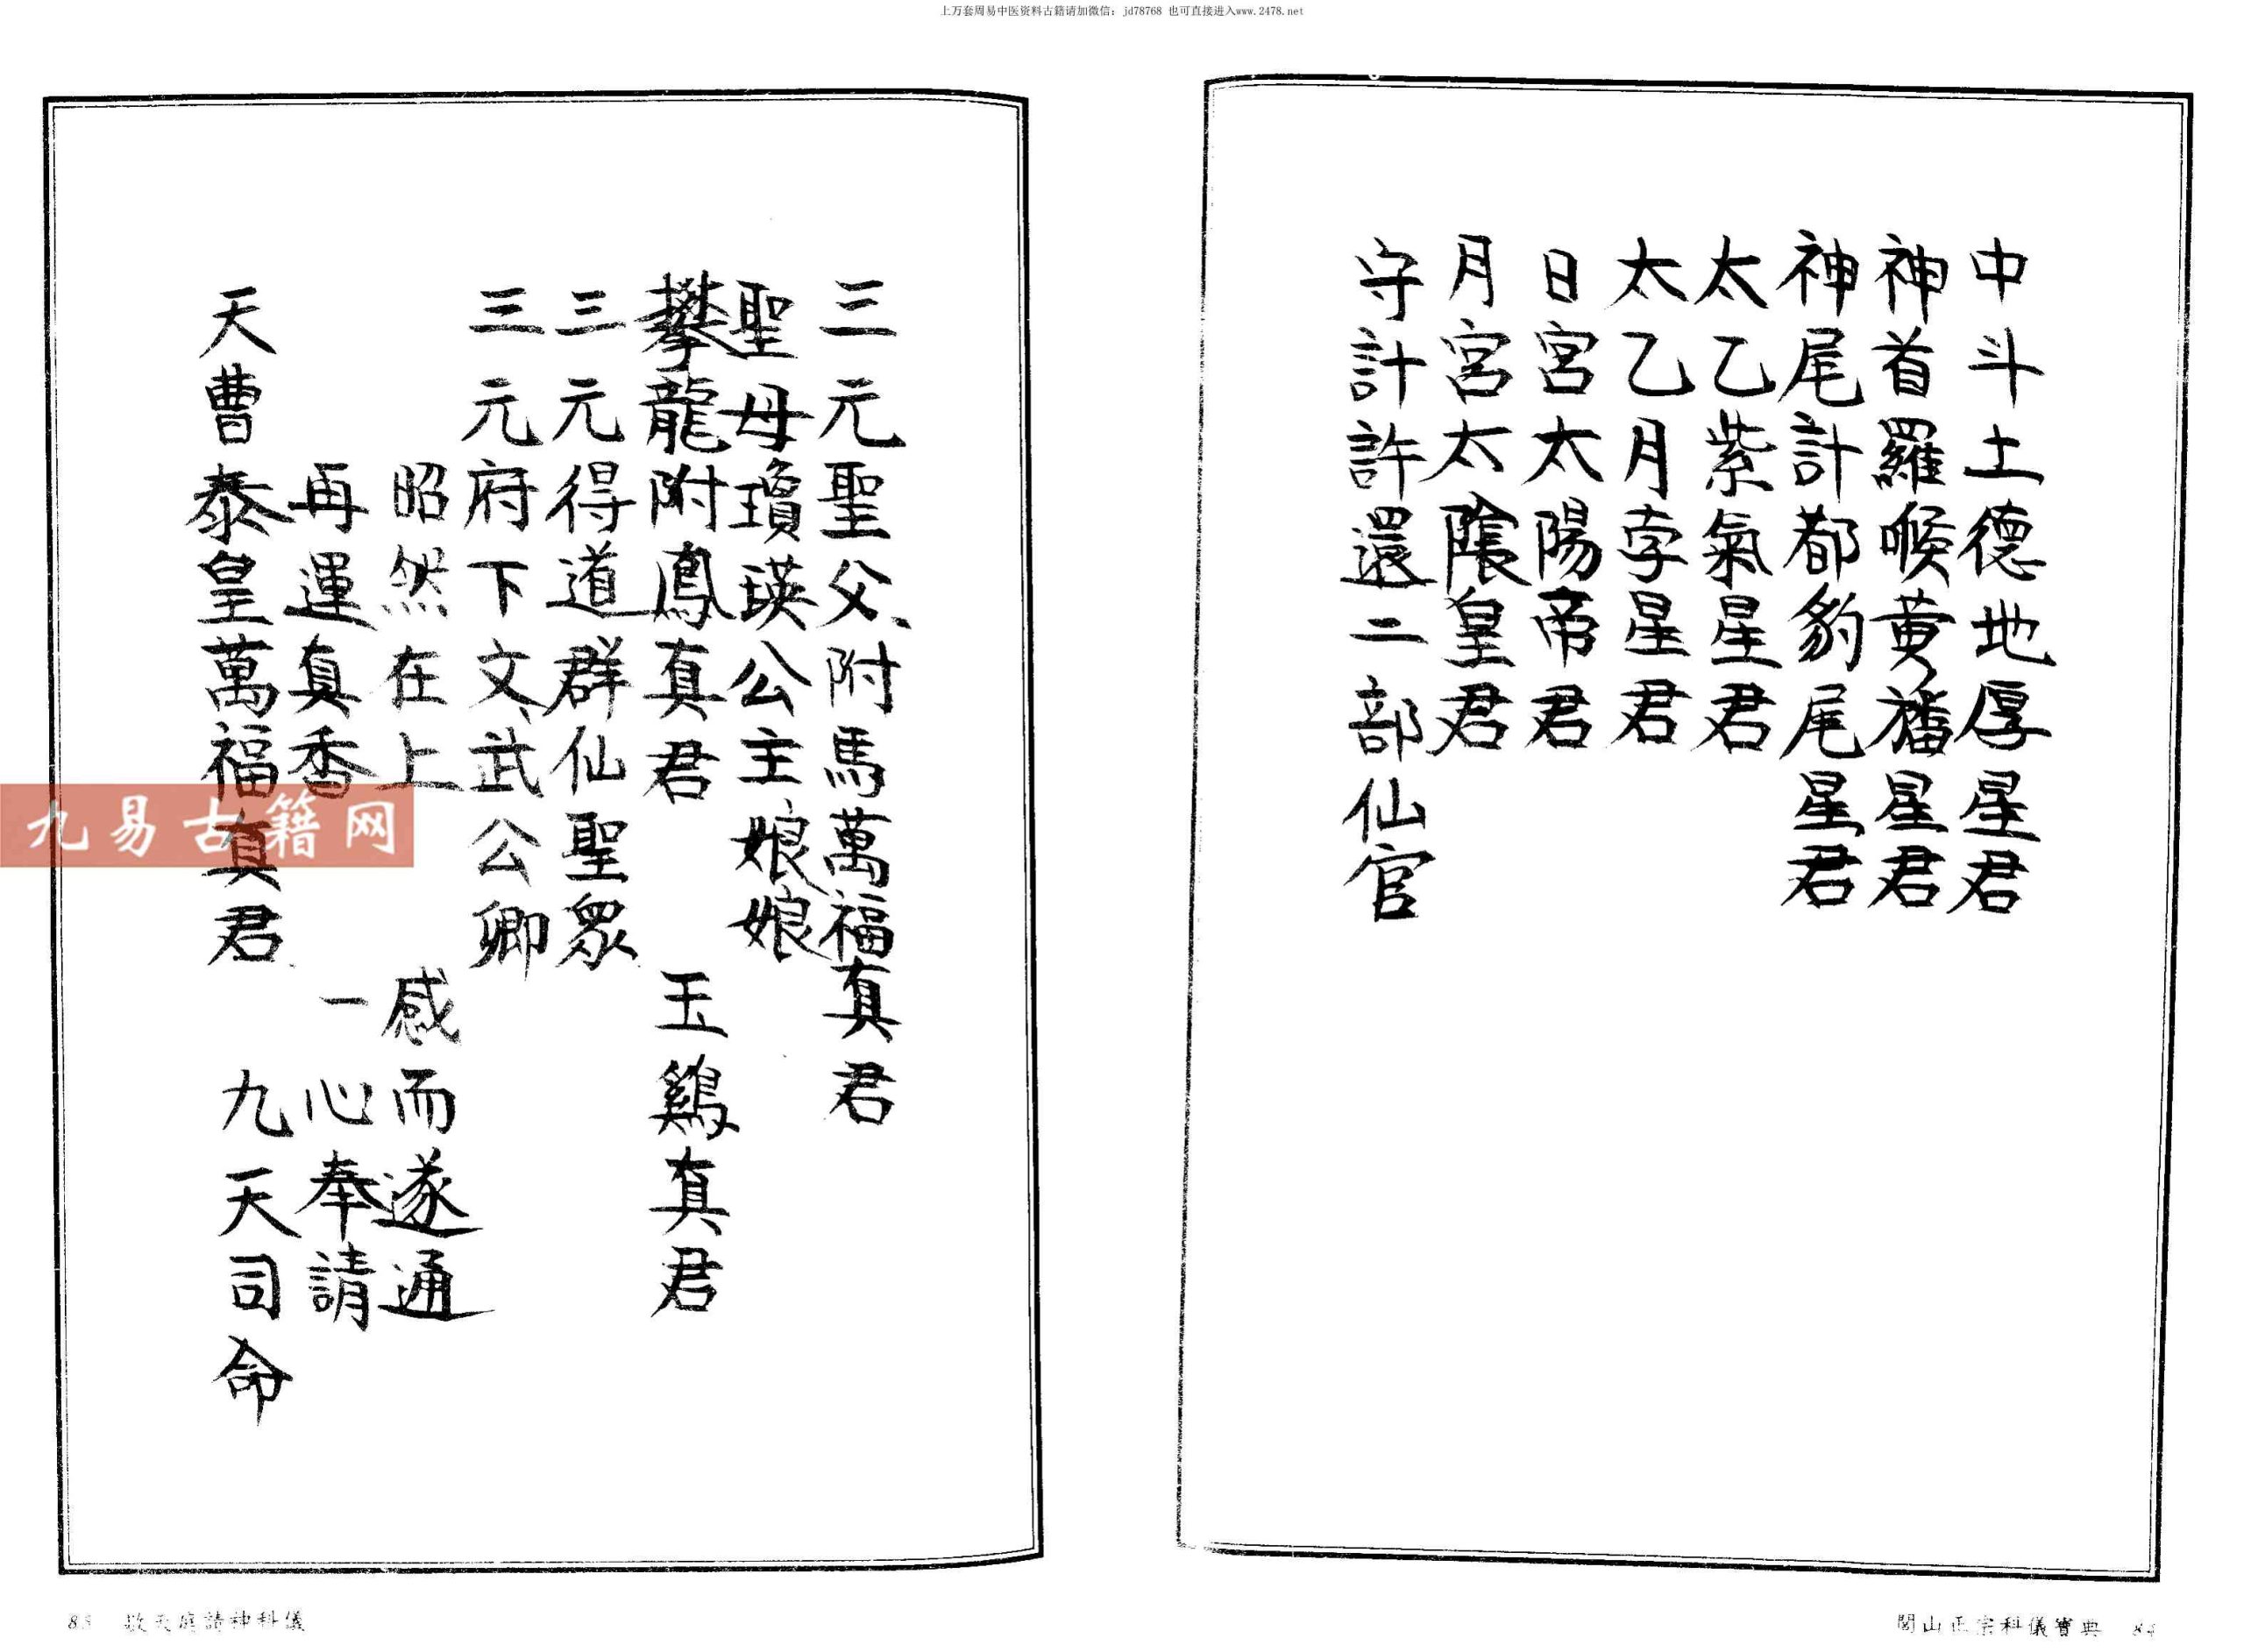 上万套周易中医资料古籍请加微信：jd78768 也可直接进入www.2478.net
中斗土德地厚星君
神首羅喉黄旛星君
神尾計都豹尾星君
太乙紫氣星君
太乙月孛星君
日宮太陽帝君
月宮太陰皇君
守計許還二部仙官
閭山正宗科儀寶典 84
三元聖父附馬萬福真君
聖母瓊瑛公主娘娘
攀龍附鳳真君 玉鷄真君
三元得道群仙聖眾
三元府下文武公卿
昭然在上 感而遂通
再運真香 一心奉請
天曹泰皇萬福真君 九天司命
九易古籍网
85 敬天庭請神科儀